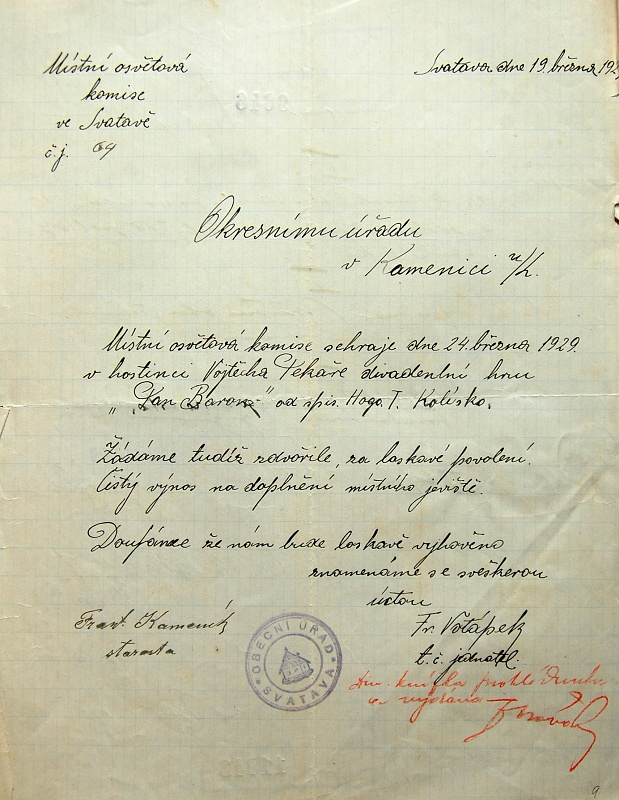 Místní osvětová
komise
ve Svatavě
č.j. 64
Svatava dne 19. března 192
Okresnímu úřadu
v Kamenici n/L.
Místní osvětová komise sehraje dne 24. března 1929.
v hostinci Vojtěcha Pekaře divadelní hru
„Pan Baron" od spis. Hogo. T. Kolísko.
Žádáme tudíž zdvořile, za laskavé povolení.
Čistý výnos na doplnění místního jeviště.
Doufáme že nám bude laskavě vyhověno
znamenáme se sveškerou
úctou
Frant. Kameník
starosta
Fr. Votápek
t. č. jednatel.
OBECNÍ ÚŘAD
SVATAVA
knížka
a vydána
9